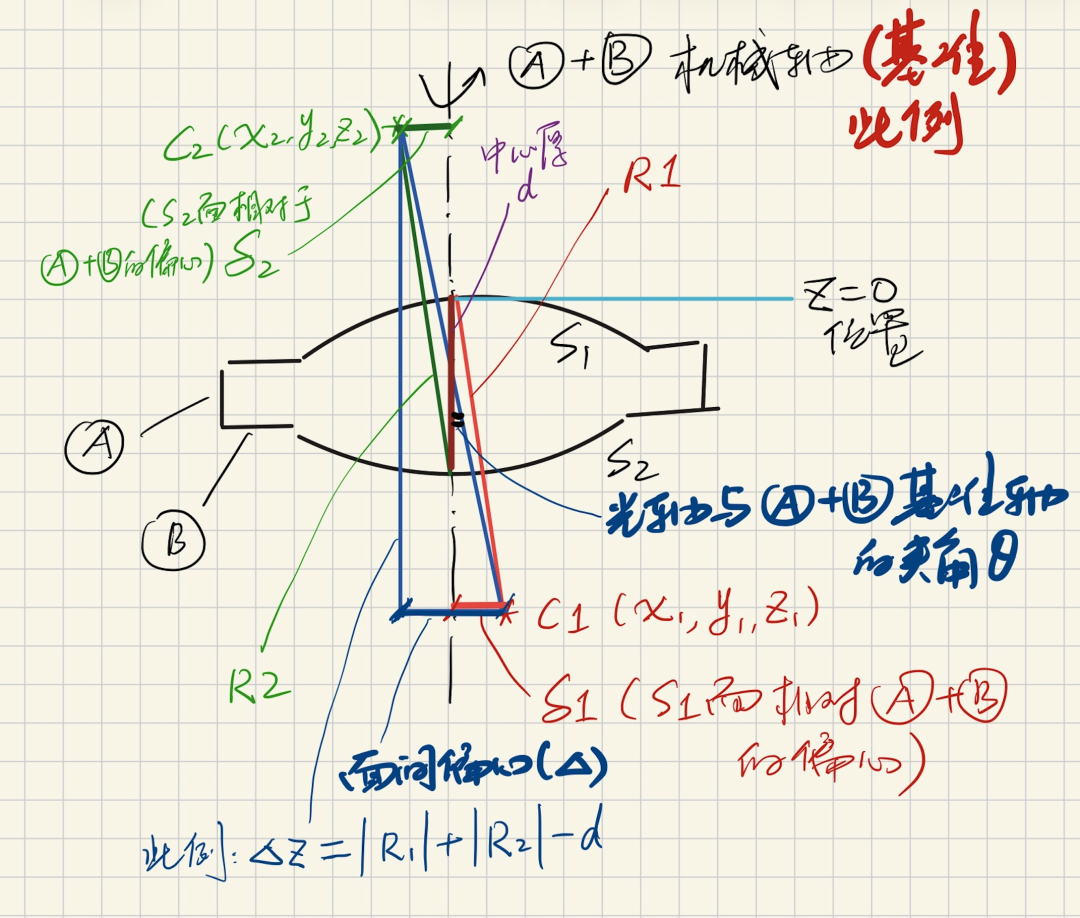 Ⓐ+Ⓑ 机械轴 (基准)
此例
C2(x2,y2,z2)
(S2面相对于
Ⓐ+Ⓑ的偏心) δ2
中心厚
d
R1
Z=0
位置
S1
S2
A
B
光轴与Ⓐ+Ⓑ基准轴
的夹角θ
C1 (x1,y1,z1)
R2
δ1 (S1面相对Ⓐ+Ⓑ
的偏心)
面间偏心(Δ)
此例: ΔZ=|R1|+|R2|-d